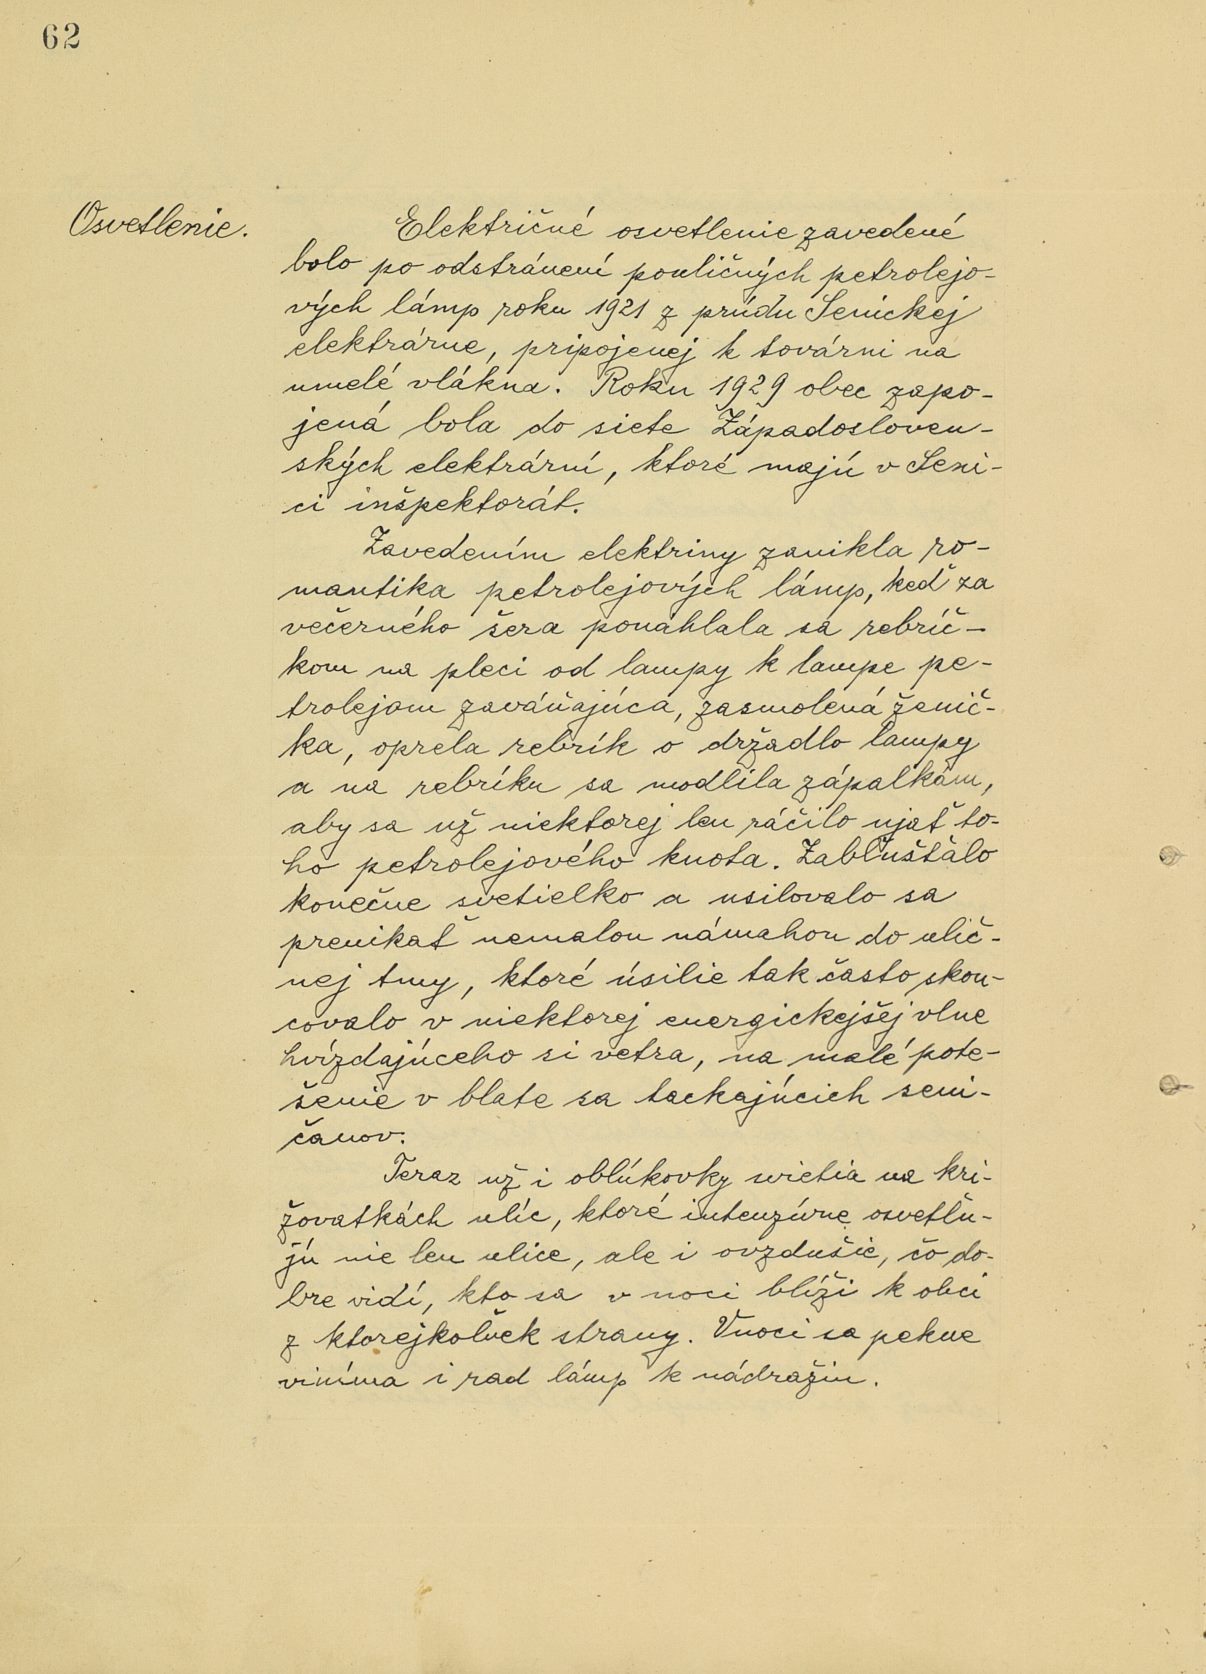 62
Osvetlenie.
Električné osvetlenie zavedené
bolo po odstránení pouličných petrolejo-
vých lámp roku 1921 z prúdu Senickej
elektrárne, pripojenej k továrni na
umelé vlákna. Roku 1929 obec zapo-
jená bola do siete Západosloven-
ských elektrární, ktoré majú v Seni-
ci inšpektorát.
Zavedením elektriny zanikla ro-
mantika petrolejových lámp, keď za
večerného šera ponáhlala sa rebríč-
kom na pleci od lampy k lampe pe-
trolejom zaváňajúca, zasmolená ženič-
ka, oprela rebrík o držadlo lampy
a na rebríku sa modlila zápalkám,
aby sa už niektorej len ráčilo ujať to-
ho petrolejového knota. Zabľušťalo
konečne svetielko a usilovalo sa
prenikať nemalou námahou do ulič-
nej tmy, ktoré úsilie tak často skon-
covalo v niektorej energickejšej vlne
hvízdajúceho si vetra, na malé pote-
šenie v blate sa tackajúcich seni-
čanov.
Teraz už i oblúkovky svietia na kri-
žovatkách ulíc, ktoré intenzívne osvetľu-
jú nie len ulice, ale i ovzdušie, čo do-
bre vidí, kto sa v noci blíži k obci
z ktorejkoľvek strany. Vnoci sa pekne
viníma i rad lámp k nádražiu.